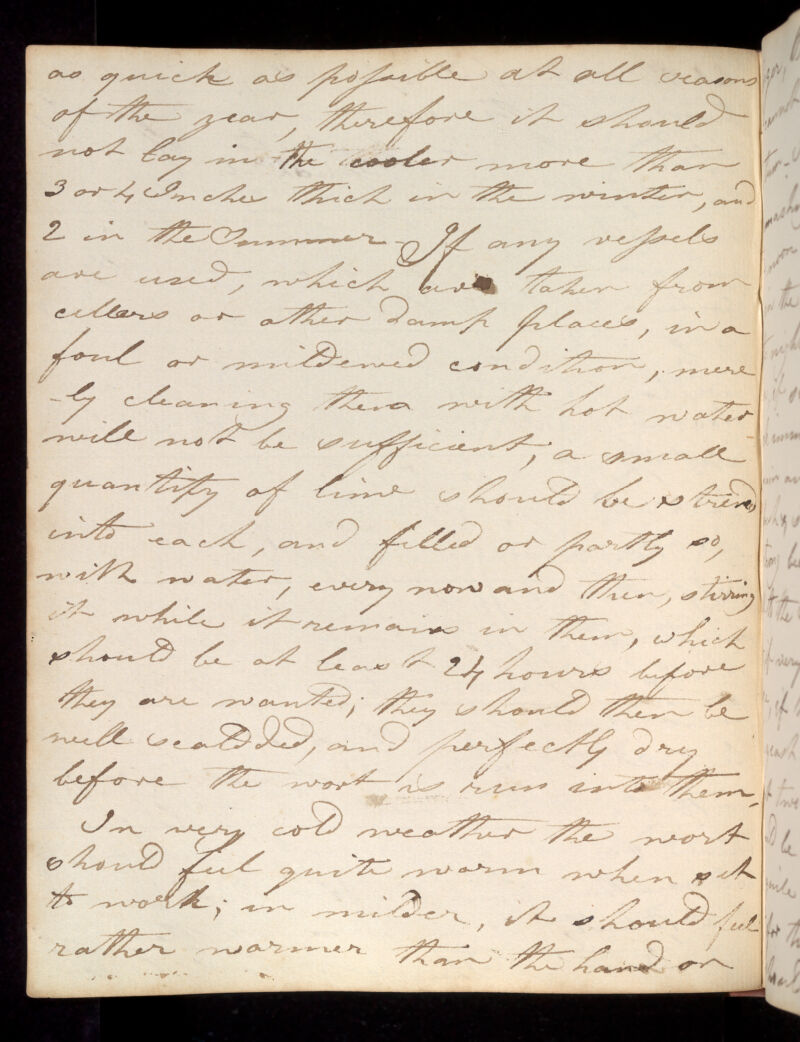 as quick as possible at all seasons
of the year, therefore it should
not lay in the cooler more than
3 or 4 Inches thick in the winter, and
2 in the Summer - If any vessels
are used, which are taken from
cellers or other damp places, in a
foul or mildewed condition, mere
-ly cleaning them with hot water
will not be sufficient, a small
quantity of lime should be strewd
into each, and filled or partly so,
with water, every now and then, stirring
it while it remains in them, which
should be at least 24 hours before
they are wanted; they should then be
well scaldded, and perfectly dry
before the wort is run into them.
In very cold weather the wort
should feel quite warm when set
to work; in milder, it should feel
rather warmer than the hand or